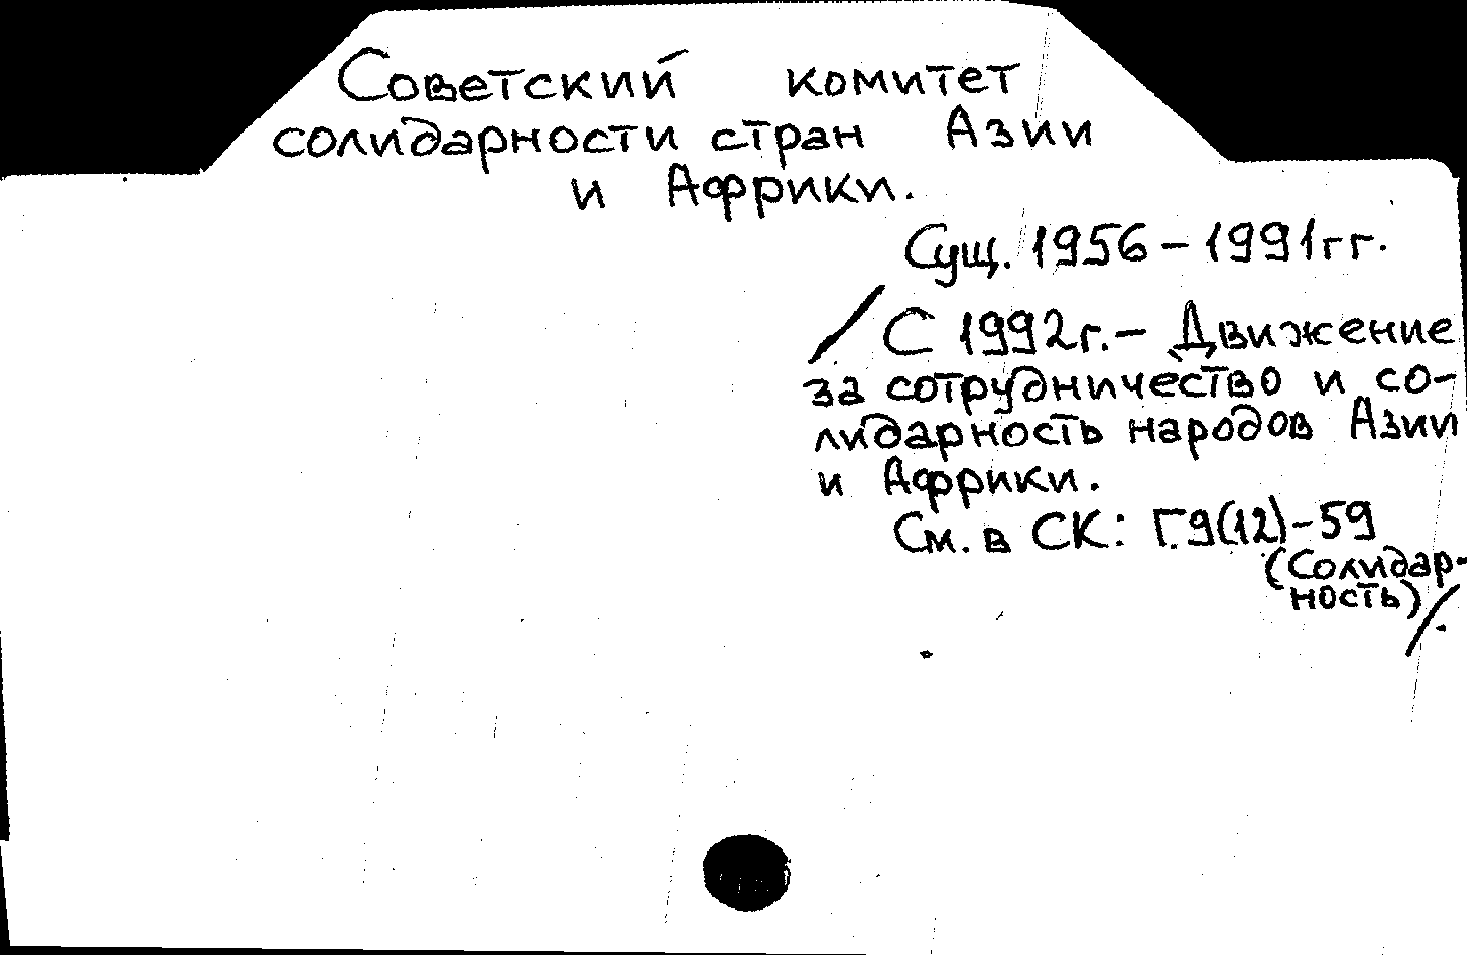 Советский комитет
солидарности стран Азии
и Африки.
Сущ. 1956 – 1991 гг.
/ С 1992 г. – Движение
за сотрудничество и со-
лидарность народов Азии
и Африки.
См. в СК: Г.9(12)-59
(Солидар-
ность) /.